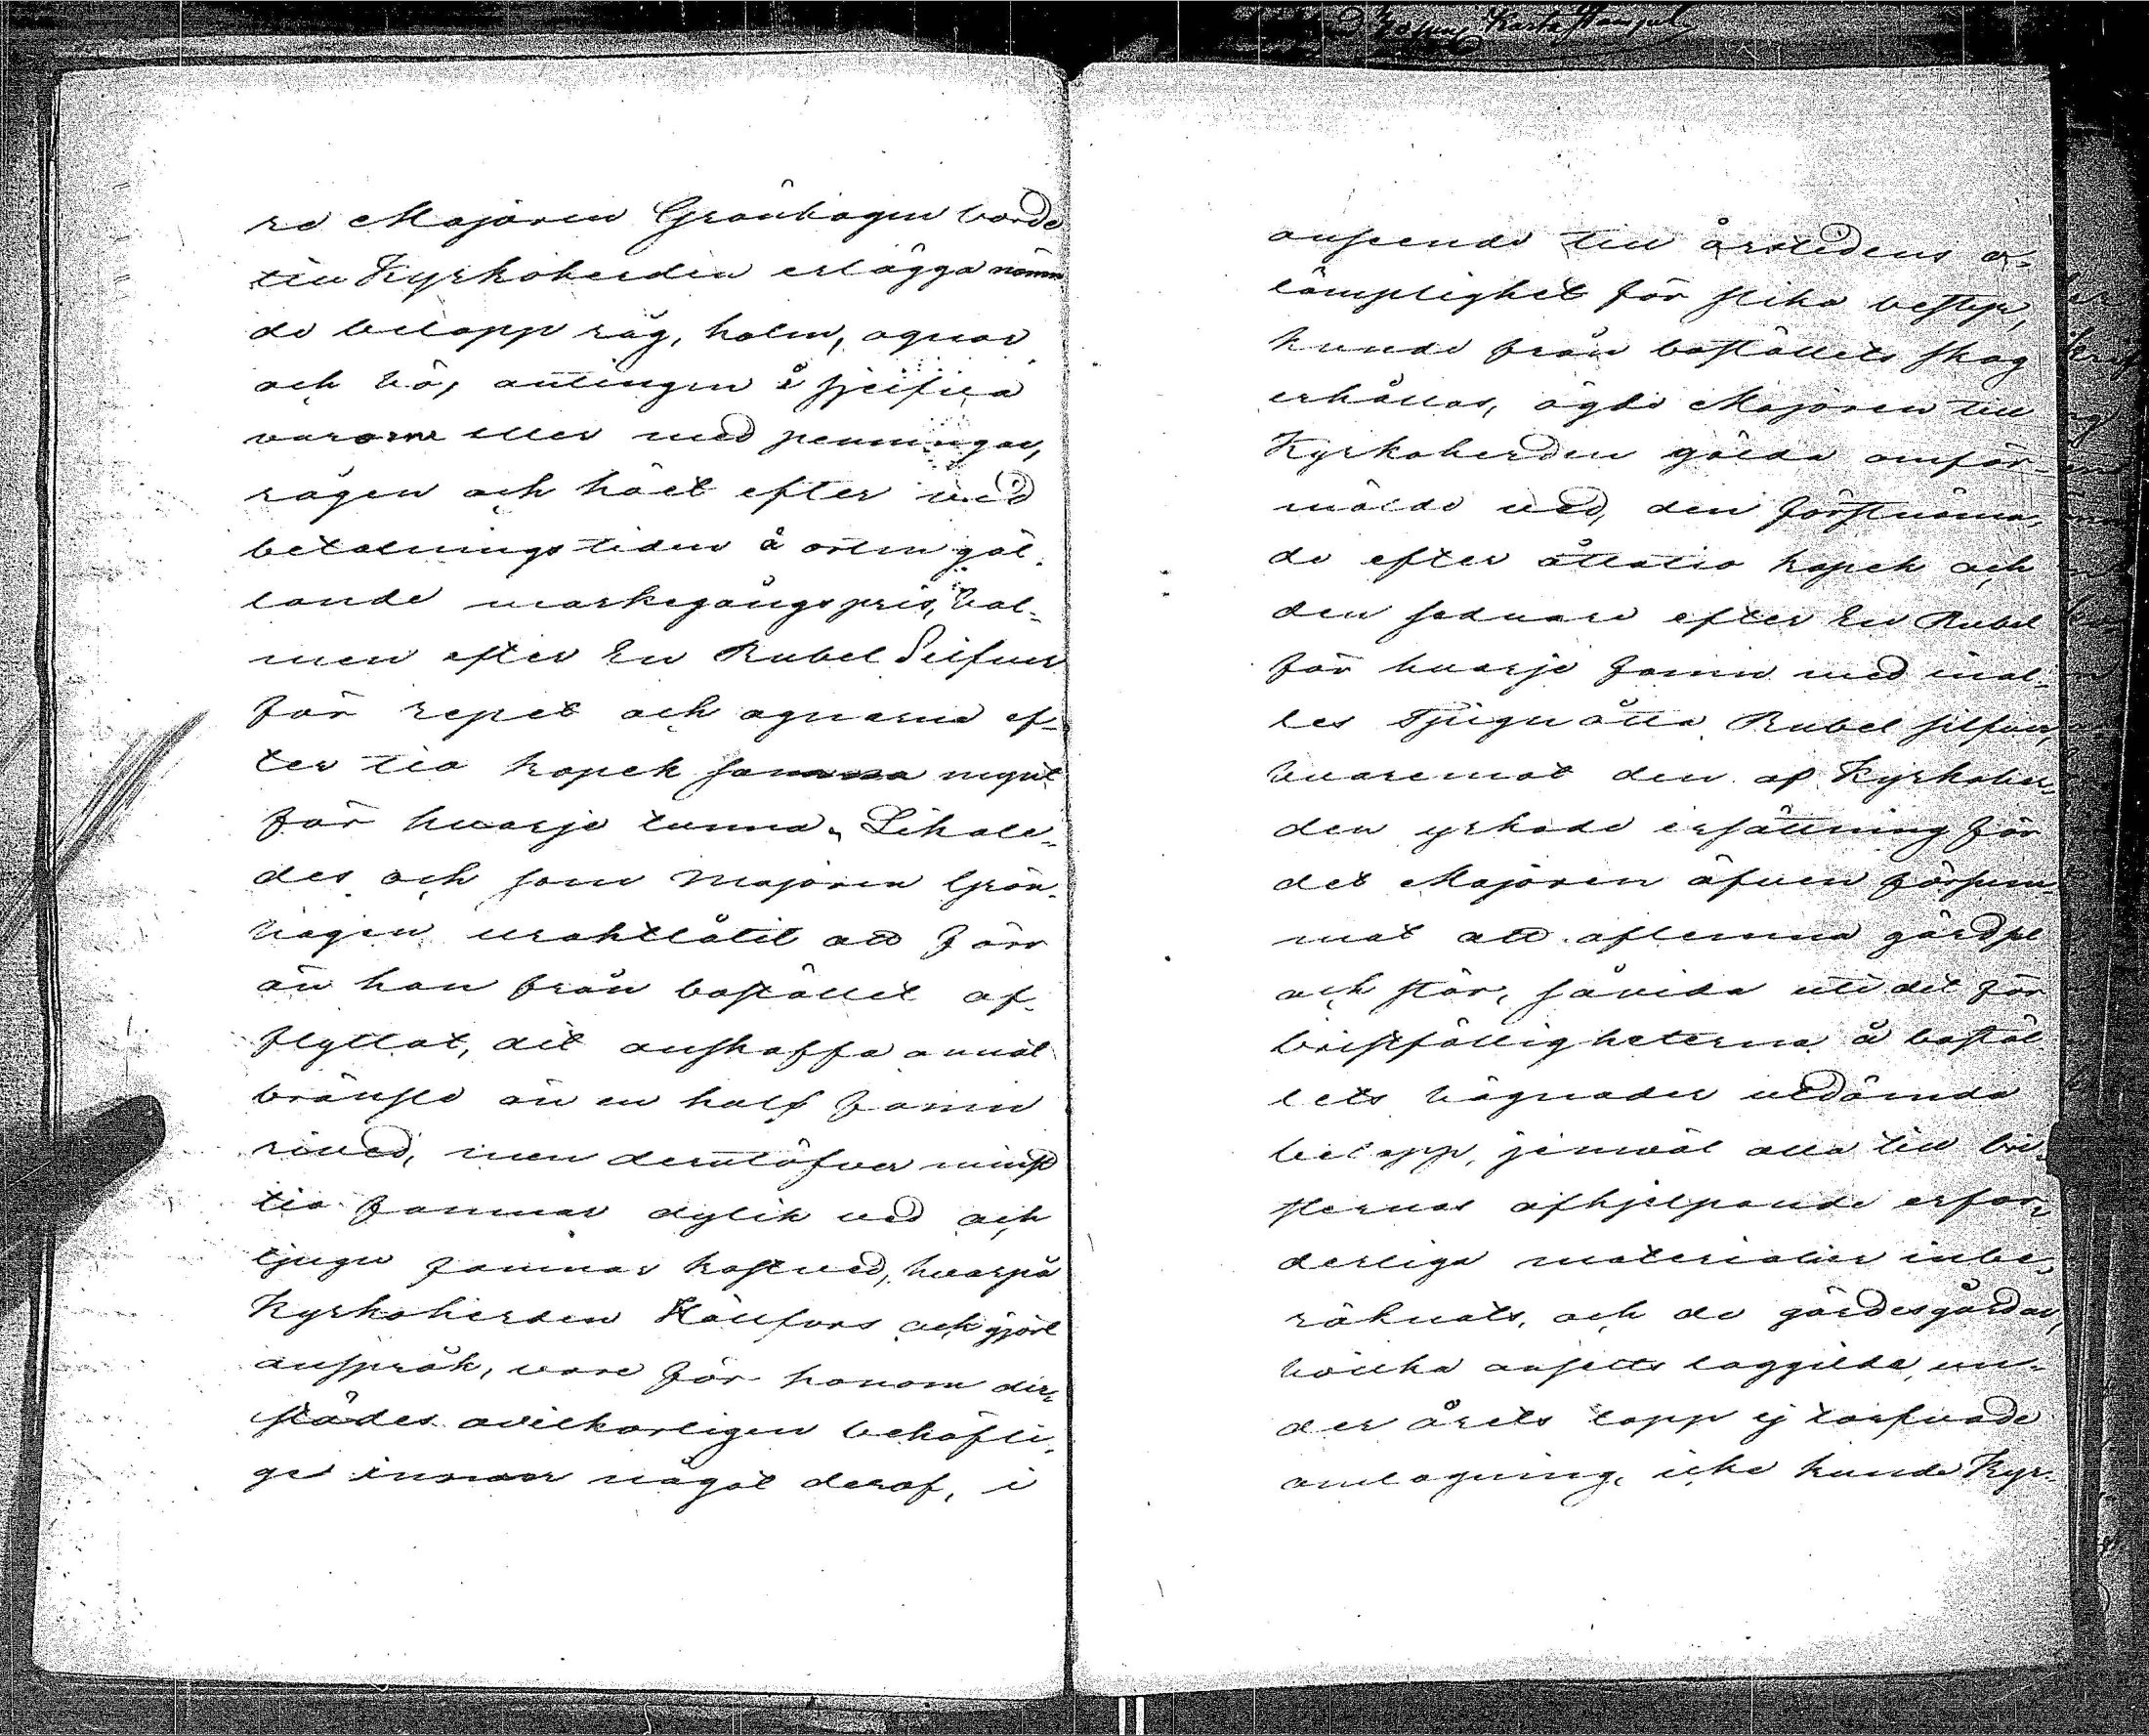 re Majoren Grönhagen borde
till Kyrkoherden erlägga nämn
de belopp råg, halm, agnar
och hö, antingen i specifica
varorne eller med penningar,
rågen och höet efter vid
betalningstiden å orten gäl-
lande markegångspris, hal-
men efter En Rubel Silfver
för repet och agnarna ef-
ter tio kopek samma mynt
för hvarje tunna. Likale-
des och som Majoren Grön-
hagen uraktlåtit att förr
än han från bostället af-
flyttat, dit anskaffa annat
bränsle än en half famn
rived, men derutöfver minst
tio famnar dylik ved och
tjugu famnar kastved, hvarpå
Kyrkoherden Hällfors ock gjort
anspråk, vore för honom der-
städes ovilkorligen behöfli-
ga innan något deraf, i
anseende till årstidens o-
lämplighet för slika bestyr,
kunde från boställets skog
erhållas, ägde Majoren till
Kyrkoherden gälda omför-
mälde ved, den förstnämn-
de efter åttatio kopek och
den sednare efter En Rubel
för hvarje famn med inal-
les Tjuguåtta Rubel silfver,
hvaremot den af Kyrkoher-
den yrkade ersättning för
det Majoren äfven försum-
mat att aflemna gärdsel
och stör, såvida uti det för
bristfälligheterna å bostäl
lets hägnader utdömda
belopp, jemväl alla till bri-
sternas afhjelpande erfor-
derliga materialier inbe-
räknats, och de gärdesgårdar,
hvilka ansetts laggilda, un-
der årets lopp ej tarfvade
omlagning, icke kunde Kyr-